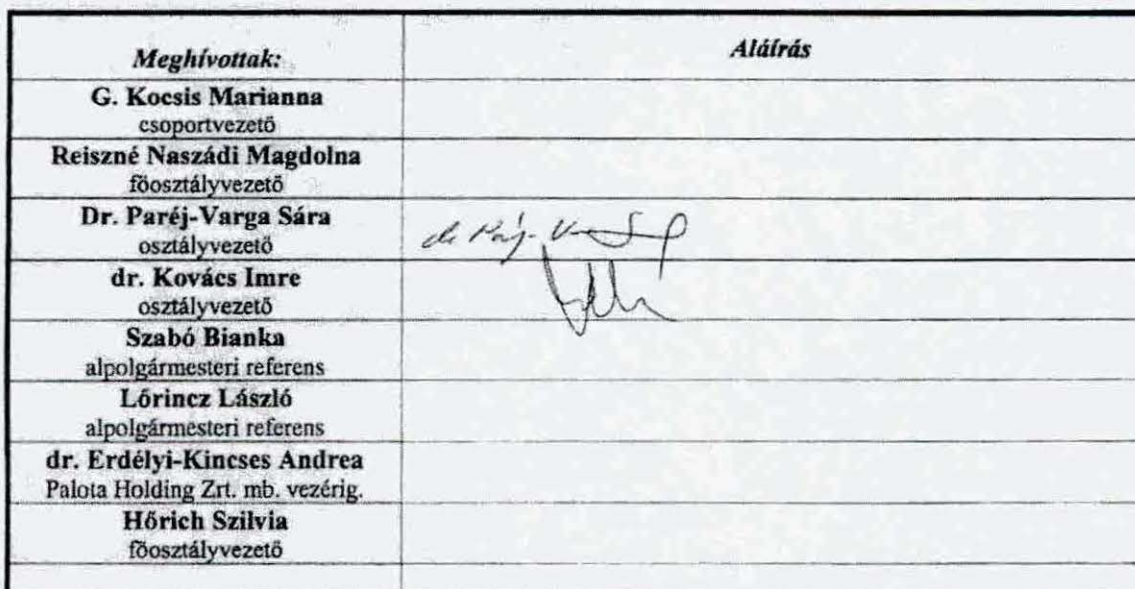 Meghívottak:
Aláírás
G. Kocsis Marianna
csoportvezető
Reiszné Naszádi Magdolna
főosztályvezető
Dr. Paréj-Varga Sára
osztályvezető
dr. Kovács Imre
osztályvezető
Szabó Bianka
alpolgármesteri referens
Lőrincz László
alpolgármesteri referens
dr. Erdélyi-Kincses Andrea
Palota Holding Zrt. mb. vezérig.
Hőrich Szilvia
főosztályvezető